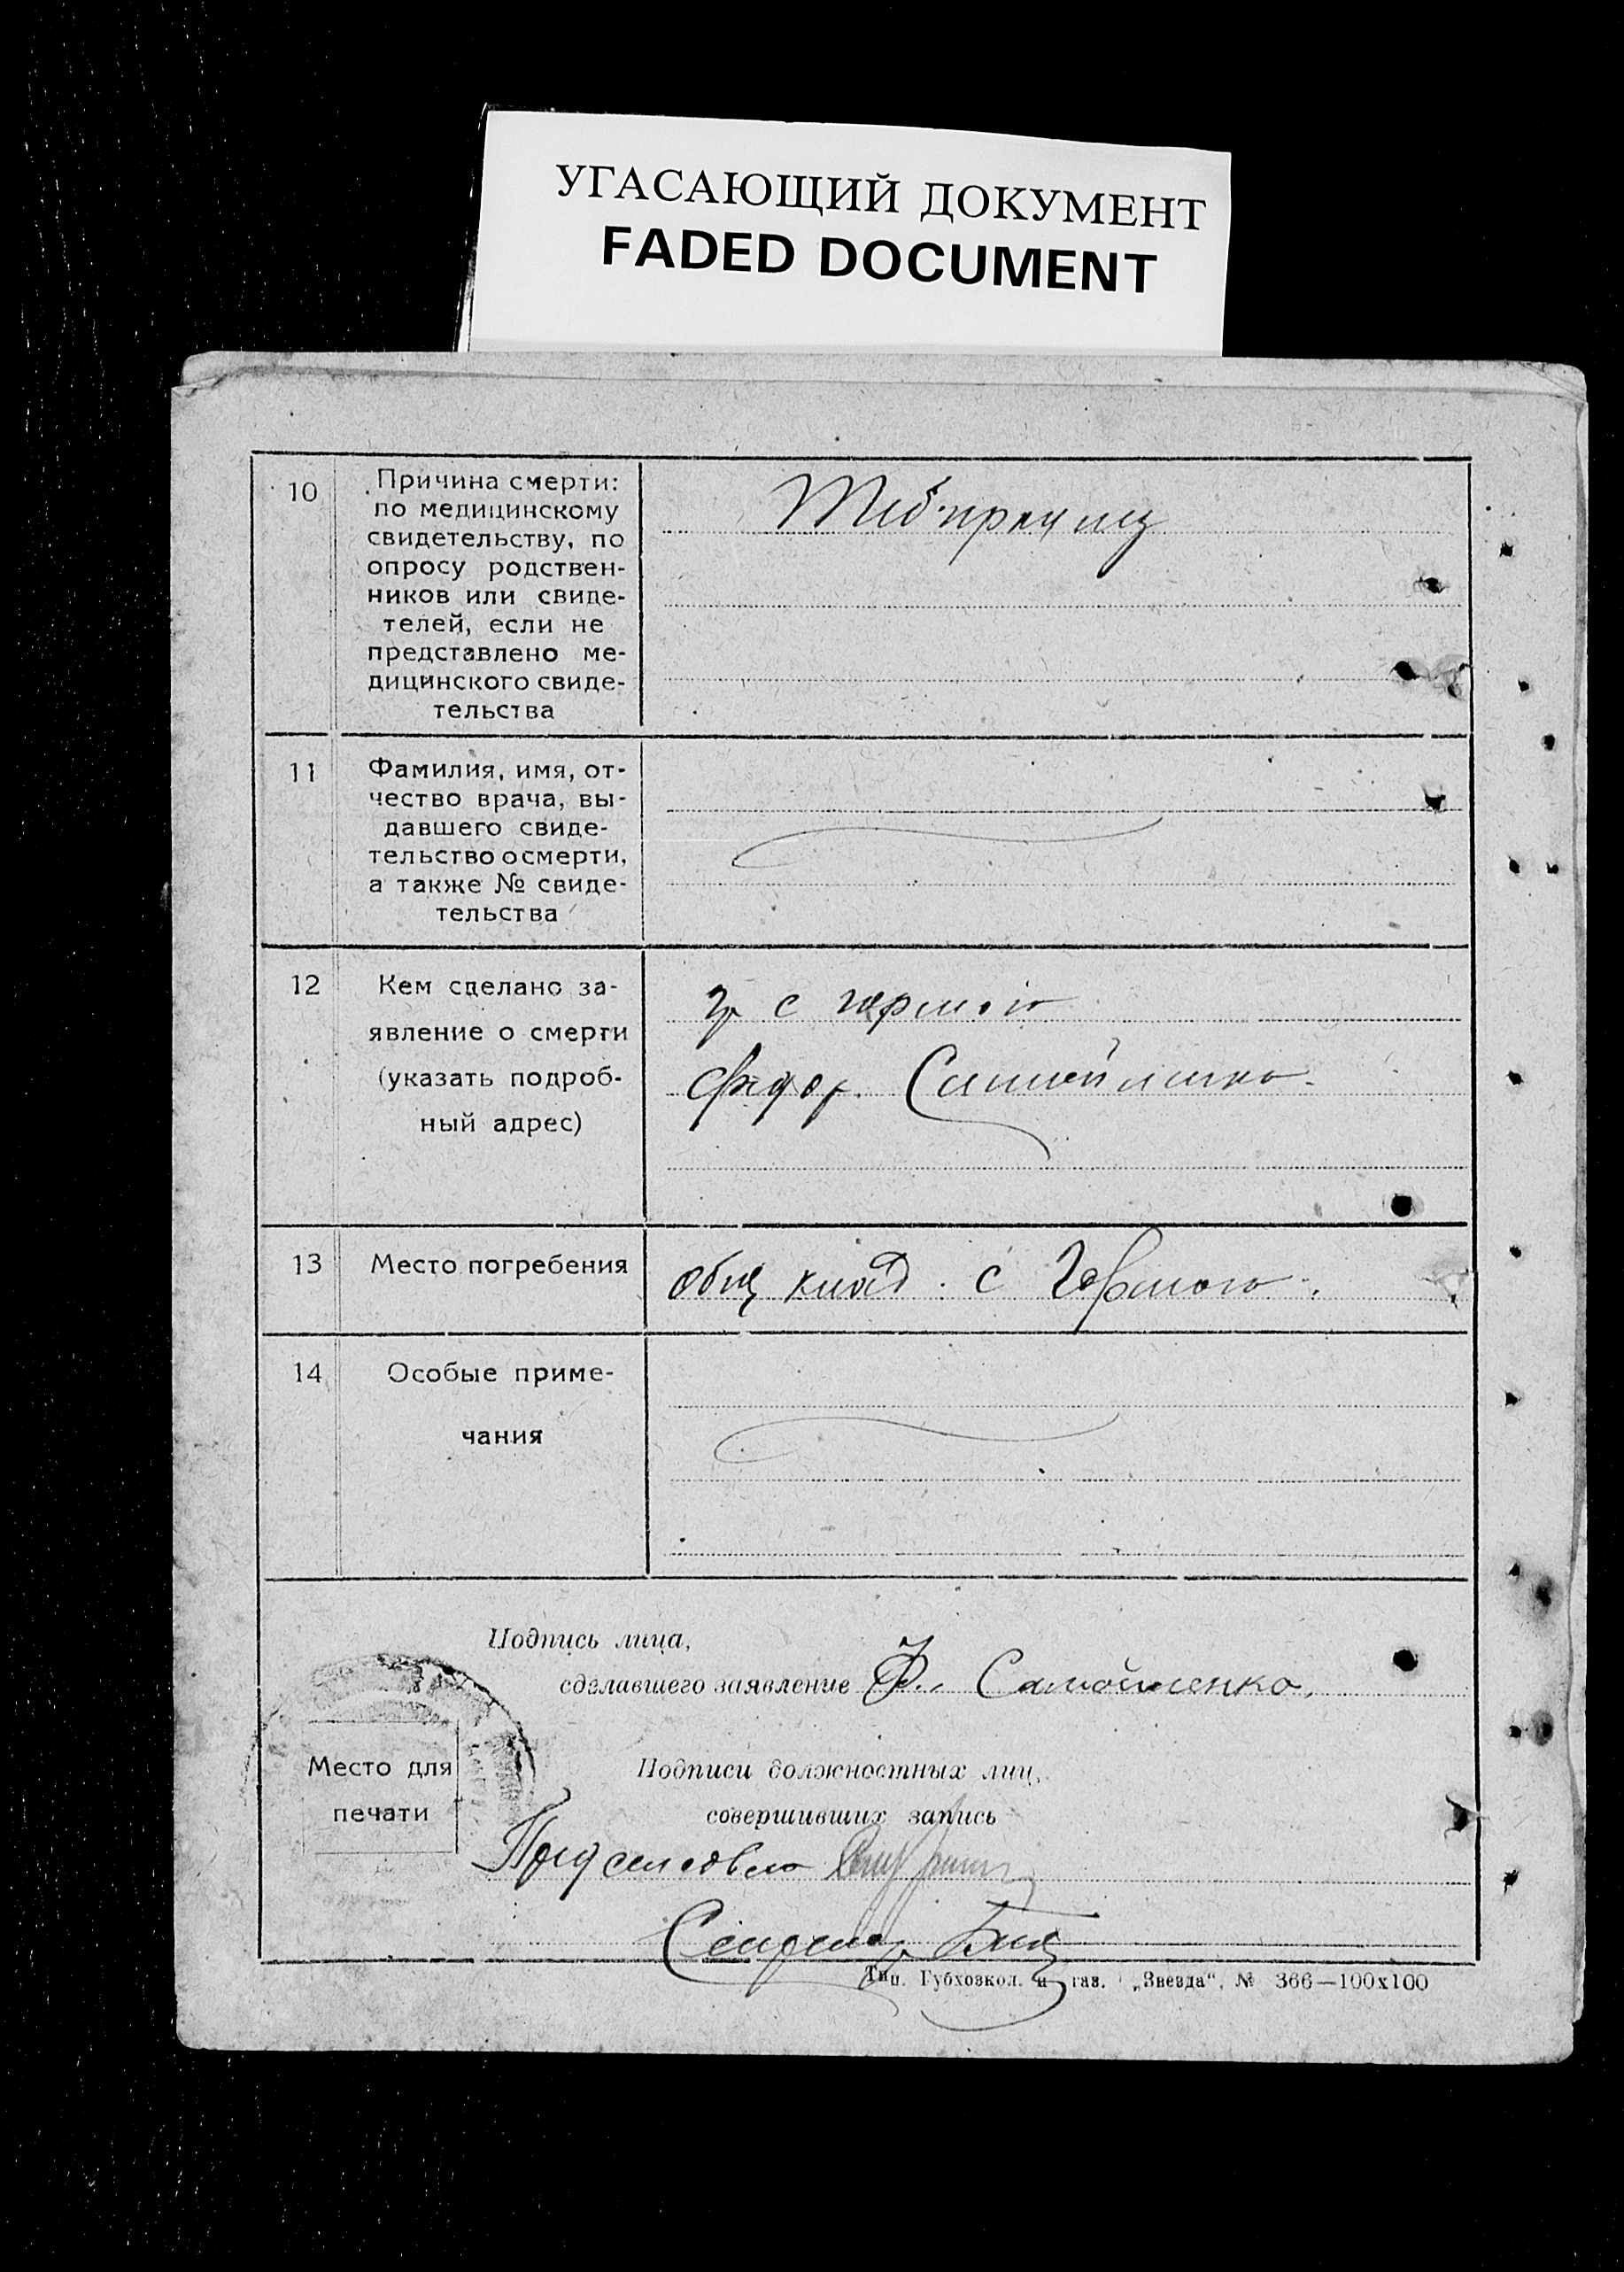 УГАСАЮЩИЙ ДОКУМЕНТ
FADED DOCUMENT
10
Причина смерти:
по медицинскому
свидетельству, по
опросу родствен-
ников или свиде-
телей, если не
представлено ме-
дицинского свиде-
тельства
11
Фамилия, имя, от-
чество врача, вы-
давшего свиде-
тельство о смерти,
а также № свиде-
тельства
12
Кем сделано за-
явление о смерти
(указать подроб-
ный адрес)
гр с
Федор. Самойленко
13
Место погребения
общ клад. с
14
Особые приме-
чания
Подпись лица,
сделавшего заявление Ф. Самойленко.
Место для
печати
Подписи должностных лиц,
совершивших запись
Пред сельсовета
Секретар
Тип. Губхозкол. и газ. „Звезда“, № 366—100х100